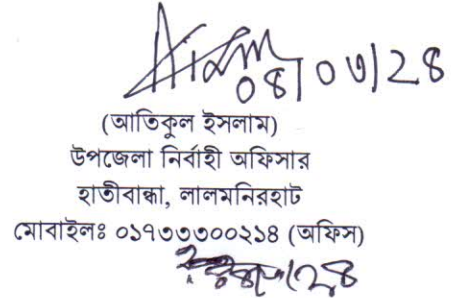 ০৪/০৩/২৪
(আতিকুল ইসলাম)
উপজেলা নির্বাহী অফিসার
হাতীবান্ধা, লালমনিরহাট
মোবাইলঃ ০১৭৩৩৩০০২১৪ (অফিস)